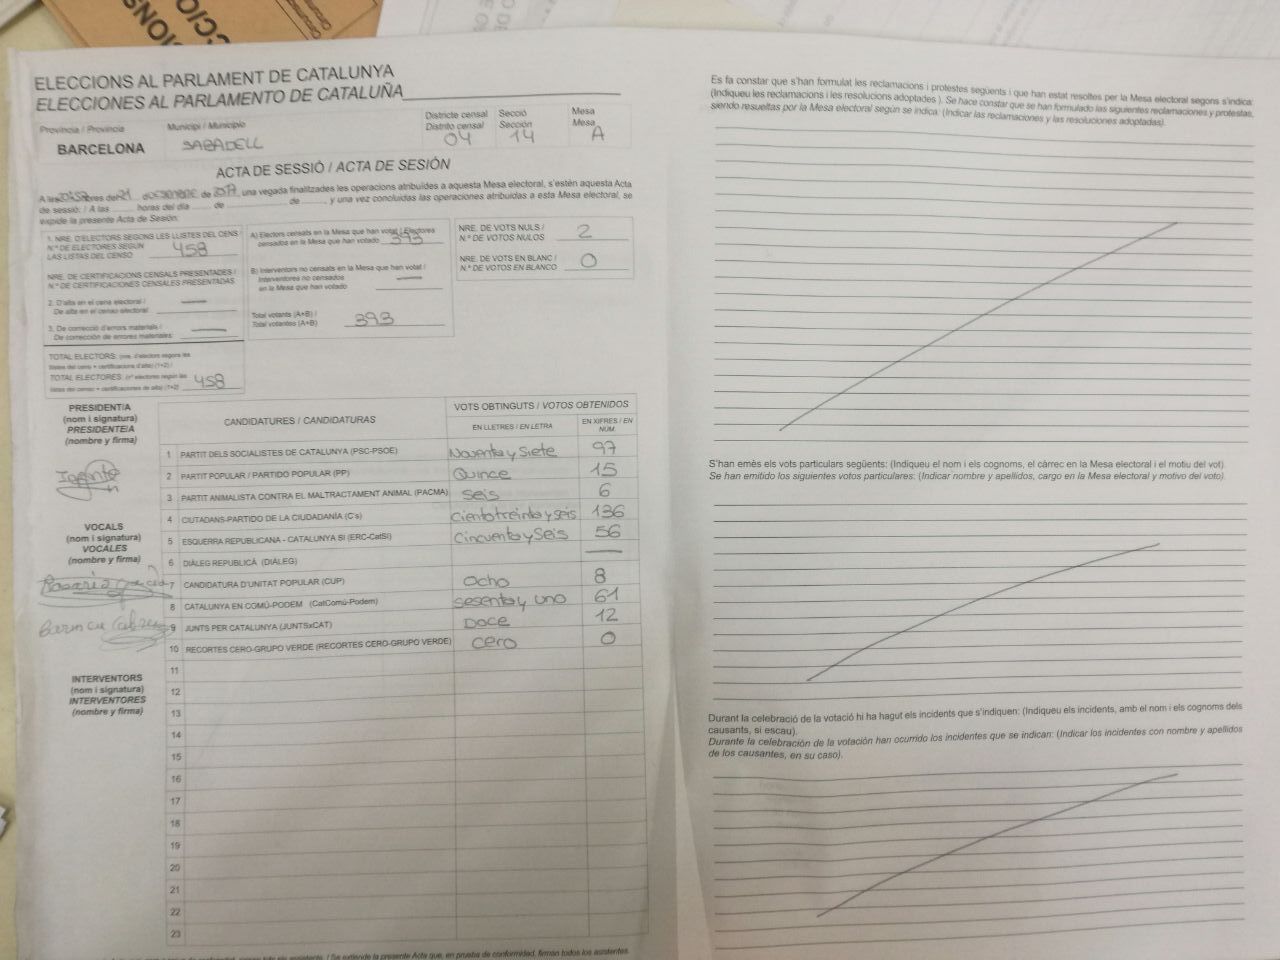 ELECCIONS AL PARLAMENT DE CATALUNYA
ELECCIONES AL PARLAMENTO DE CATALUÑA
Província / Provincia
BARCELONA
Municipi / Municipio
SABADELL
Districte censal
Distrito censal
04
Secció
Sección
14
Mesa
Mesa
A
ACTA DE SESSIÓ / ACTA DE SESIÓN
A les 20:58 hores del 21 DICIEMBRE de 2017, una vegada finalitzades les operacions atribuïdes a aquesta Mesa electoral, s'estén aquesta Acta
de sessió: / A las horas del día de de , y una vez concluidas las operaciones atribuidas a esta Mesa electoral, se
expide la presente Acta de Sesión:
1. NRE. D'ELECTORS SEGONS LES LLISTES DEL CENS /
N.º DE ELECTORES SEGÚN
LAS LISTAS DEL CENSO 458
NRE. DE CERTIFICACIONS CENSALS PRESENTADES /
N.º DE CERTIFICACIONES CENSALES PRESENTADAS
2. D'alta en el cens electoral /
De alta en el censo electoral
3. De correcció d'errors materials /
De corrección de errores materiales
TOTAL ELECTORS: (nre. d'electors segons les
llistes del cens + certificacions d'alta) (1+2) /
TOTAL ELECTORES: (nº electores según las
listas del censo + certificaciones de alta) (1+2) 458
A) Electors censats en la Mesa que han votat / Electores
censados en la Mesa que han votado 393
B) Interventors no censats en la Mesa que han votat /
Interventores no censados
en la Mesa que han votado
Total votants (A+B) /
Total votantes (A+B) 393
NRE. DE VOTS NULS /
N.º DE VOTOS NULOS 2
NRE. DE VOTS EN BLANC /
N.º DE VOTOS EN BLANCO 0
PRESIDENT/A
(nom i signatura)
PRESIDENTE/A
(nombre y firma)
VOCALS
(nom i signatura)
VOCALES
(nombre y firma)
Rosario
INTERVENTORS
(nom i signatura)
INTERVENTORES
(nombre y firma)
CANDIDATURES / CANDIDATURAS
VOTS OBTINGUTS / VOTOS OBTENIDOS
EN LLETRES / EN LETRA
EN XIFRES / EN NÚM.
1 PARTIT DELS SOCIALISTES DE CATALUNYA (PSC-PSOE) Noventa y Siete 97
2 PARTIT POPULAR / PARTIDO POPULAR (PP) Quince 15
3 PARTIT ANIMALISTA CONTRA EL MALTRACTAMENT ANIMAL (PACMA) Seis 6
4 CIUTADANS-PARTIDO DE LA CIUDADANÍA (C's) Ciento treinta y seis 136
5 ESQUERRA REPUBLICANA - CATALUNYA SÍ (ERC-CatSí) Cincuenta y Seis 56
6 DIÀLEG REPUBLICÀ (DIÀLEG)
7 CANDIDATURA D'UNITAT POPULAR (CUP) Ocho 8
8 CATALUNYA EN COMÚ-PODEM (CatComú-Podem) sesenta y uno 61
9 JUNTS PER CATALUNYA (JUNTSxCAT) DOCE 12
10 RECORTES CERO-GRUPO VERDE (RECORTES CERO-GRUPO VERDE) cero 0
11
12
13
14
15
16
17
18
19
20
21
22
23
/ Se extiende la presente Acta que, en prueba de conformidad, firman todos los asistentes.
Es fa constar que s'han formulat les reclamacions i protestes següents i que han estat resoltes per la Mesa electoral segons s'indica:
(Indiqueu les reclamacions i les resolucions adoptades ). Se hace constar que se han formulado las siguientes reclamaciones y protestas,
siendo resueltas por la Mesa electoral según se indica. (Indicar las reclamaciones y las resoluciones adoptadas).
S'han emès els vots particulars següents: (Indiqueu el nom i els cognoms, el càrrec en la Mesa electoral i el motiu del vot).
Se han emitido los siguientes votos particulares: (Indicar nombre y apellidos, cargo en la Mesa electoral y motivo del voto).
Durant la celebració de la votació hi ha hagut els incidents que s'indiquen: (Indiqueu els incidents, amb el nom i els cognoms dels
causants, si escau).
Durante la celebración de la votación han ocurrido los incidentes que se indican: (Indicar los incidentes con nombre y apellidos
de los causantes, en su caso).